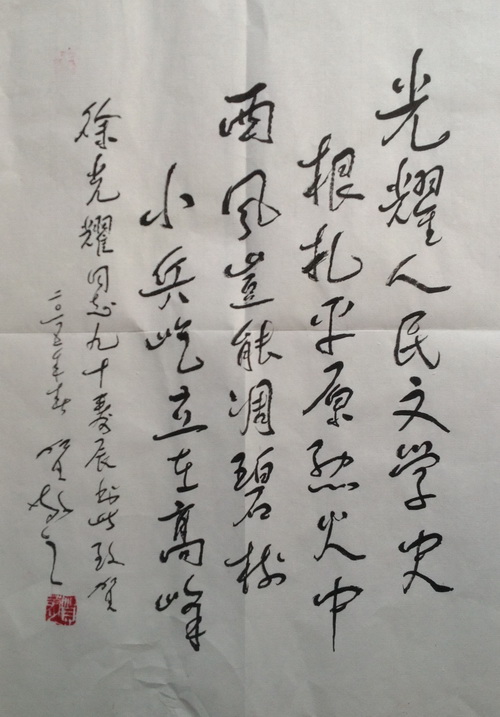 光耀人民文学史
根扎平原烈火中
西风岂能凋碧树
小兵屹立在高峰
徐光耀同志九十寿辰书此致贺
二〇一五年春 贺敬之